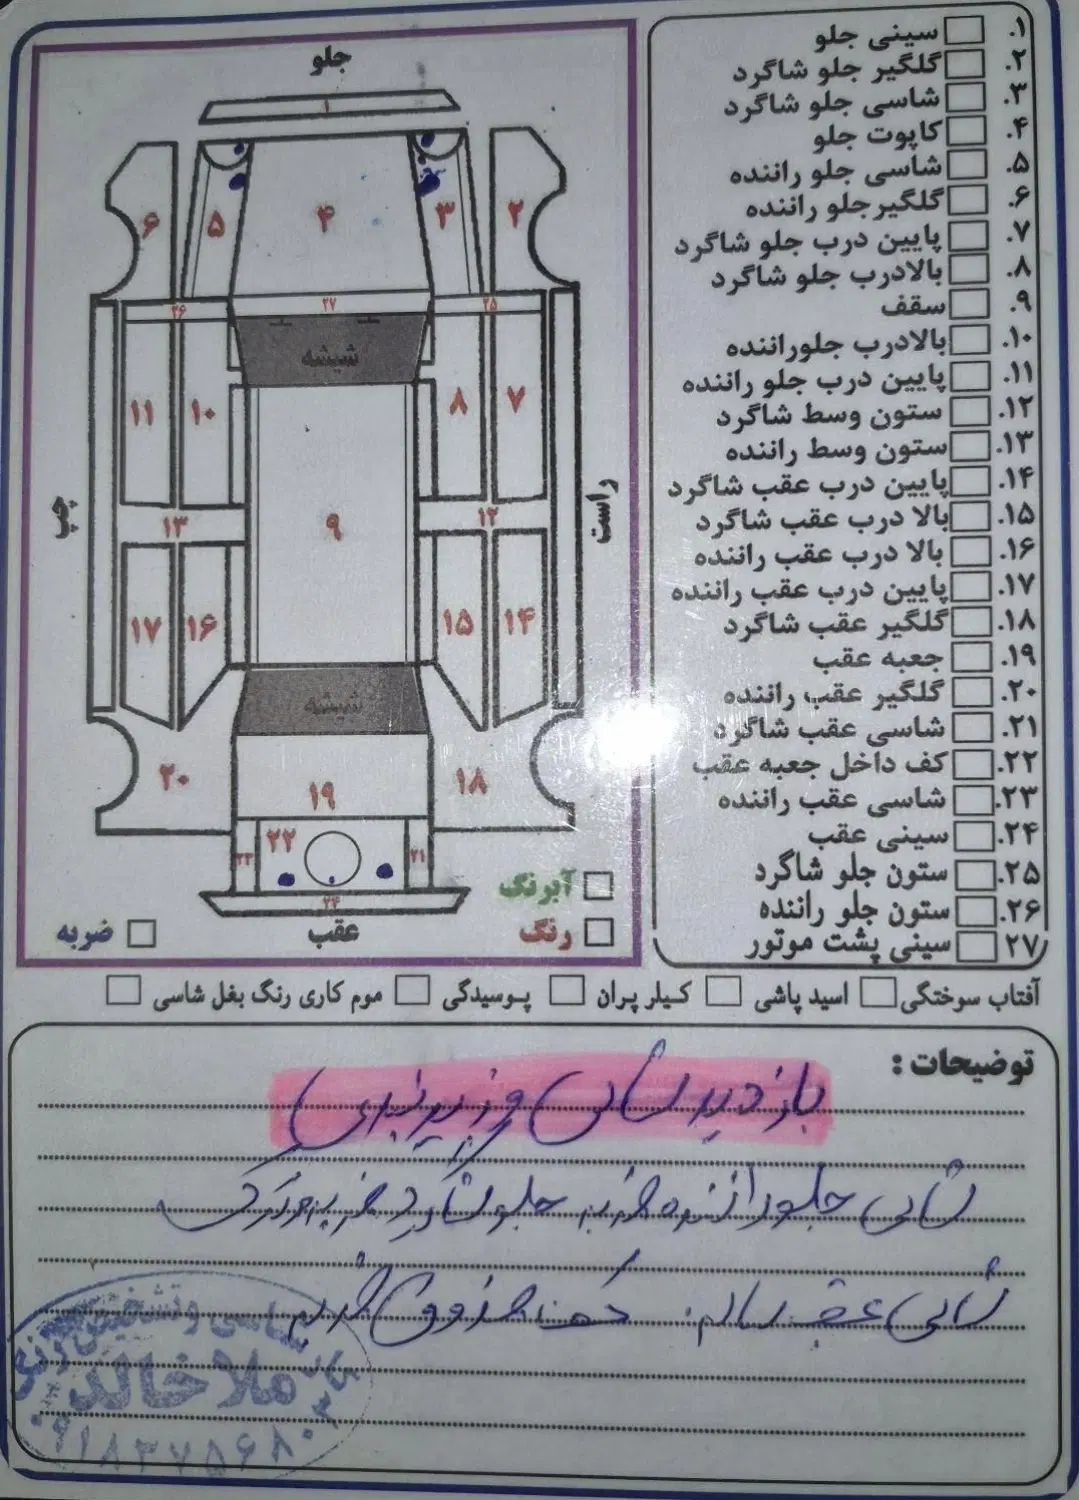 ۱. سینی جلو
۲. گلگیر جلو شاگرد
۳. شاسی جلو شاگرد
۴. کاپوت جلو
۵. شاسی جلو راننده
۶. گلگیر جلو راننده
۷. پایین درب جلو شاگرد
۸. بالادرب جلو شاگرد
۹. سقف
۱۰. بالادرب جلوراننده
۱۱. پایین درب جلو راننده
۱۲. ستون وسط شاگرد
۱۳. ستون وسط راننده
۱۴. پایین درب عقب شاگرد
۱۵. بالا درب عقب شاگرد
۱۶. بالا درب عقب راننده
۱۷. پایین درب عقب راننده
۱۸. گلگیر عقب شاگرد
۱۹. جعبه عقب
۲۰. گلگیر عقب راننده
۲۱. شاسی عقب شاگرد
۲۲. کف داخل جعبه عقب
۲۳. شاسی عقب راننده
۲۴. سینی عقب
۲۵. ستون جلو شاگرد
۲۶. ستون جلو راننده
۲۷. سینی پشت موتور
جلو
۱
۲ ۳ ۴ ۵ ۶
۲۵ ۲۷ ۲۶
شیشه
۷ ۸ ۱۰ ۱۱
راست ۹ چپ
۱۲ ۱۳
۱۴ ۱۵ ۱۶ ۱۷
شیشه
۱۸ ۱۹ ۲۰
۲۱ ۲۲ ۲۳
۲۴
آبرنگ
رنگ عقب ضربه
آفتاب سوختگی اسید پاشی کیلر پران پوسیدگی موم کاری رنگ بغل شاسی
توضیحات :
بازدید شاسی و زیربندی
شاسی جلو راننده ضربه جلو شاگرد ضربه
شاسی عقب سالم کف صندوق ضربه
ملا خالد